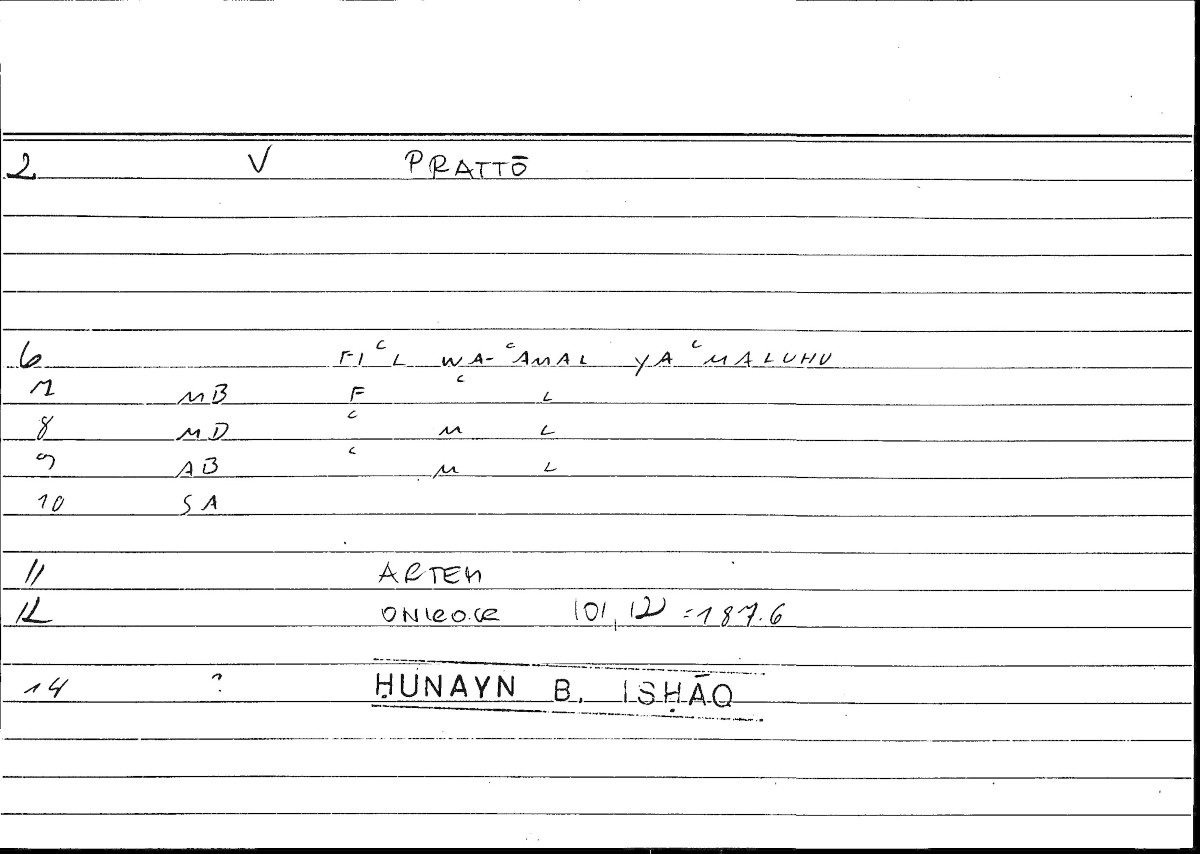 2 V PRATTŌ
6 FIʿL WA-ʿAMAL YAʿMALUHU
7 MB F ʿ L
8 MD ʿ M L
9 AB ʿ M L
10 SA
11 ARTEM
12 ONIROCR 101,12 = 187.6
14 ? ḤUNAYN B. ISḤĀQ